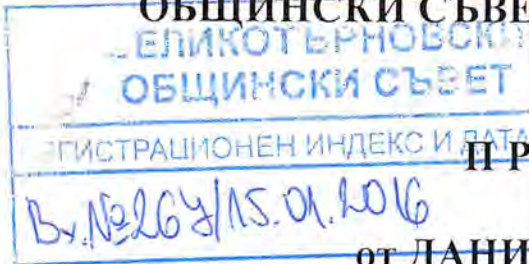 ОБЩИНСКИ СЪВЕ
ЕЛИКОТЪРНОВСК
ОБЩИНСКИ СЪВЕТ
ГИСТРАЦИОНЕН ИНДЕКС И ДАТА
П Р
Вх.№267/15.01.2016
от ДАНИ